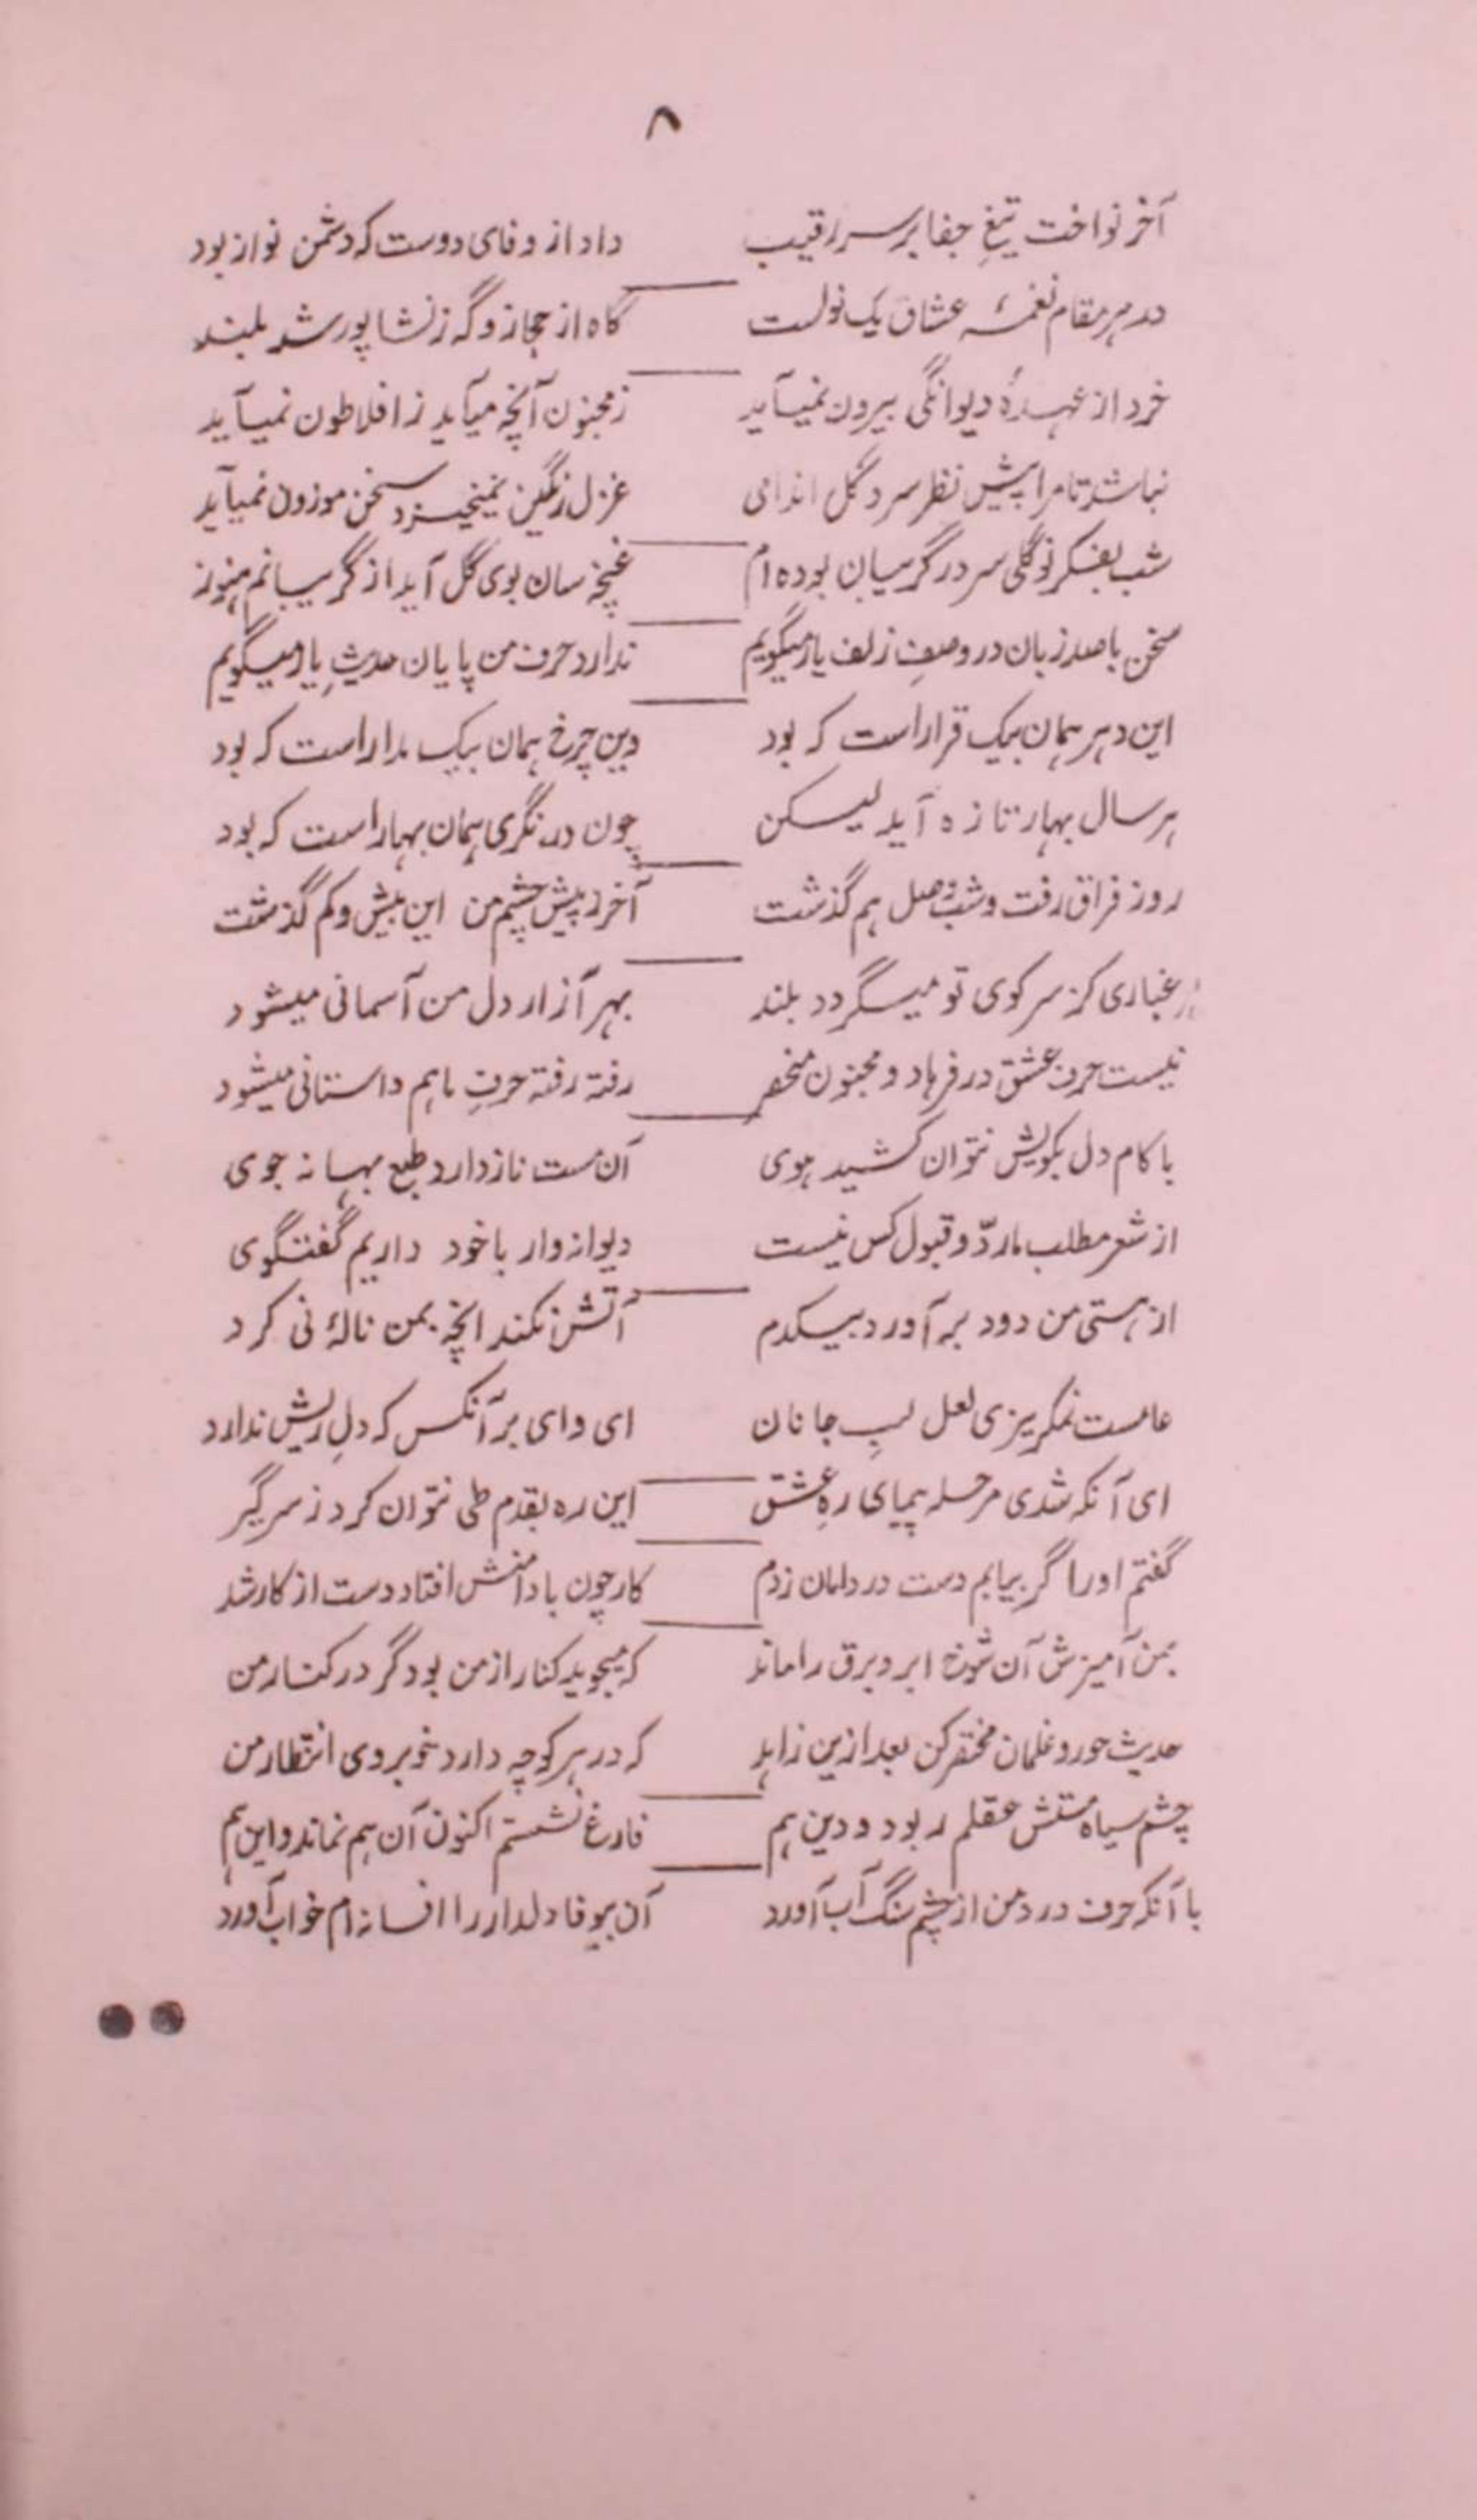 ۸
آخر نواخت تیغِ جفا بر سر رقیب داد از وفای دوست که دشمن نواز بود
در هر مقام نغمۂ عشاق یک نواست گاه از حجاز و گه ز نشاپور شد بلند
خرد از عہدۂ دیوانگی بیرون نمیآید ز مجنون آنچه میآید ز افلاطون نمیآید
نباشد تا مرا پیش نظر سرو گل اندامی غزل رنگین نمیخیزد سخن موزون نمیآید
شب بفکر نو گلی سر در گریبان بوده ام غنچه سان بوی گل آید از گریبانم هنوز
سخن با صد زبان در وصفِ زلف یار میگویم ندارد حرف من پایان حدیثِ یار میگویم
این دہر ہمان بیک قرار است کہ بود وین چرخ ہمان بیک مدار است کہ بود
ہر سال بہار تازه آید لیکن چون در نگری ہمان بہار است کہ بود
روز فراق رفت و شب وصل ہم گذشت آخر ز پیش چشم من این بیش و کم گذشت
ہر غباری کز سر کوی تو میگردد بلند بہر آزار دل من آسمانی میشود
نیست حرف عشق در فرہاد و مجنون منحصر رفته رفته حرفِ ما ہم داستانی میشود
با کام دل بکویش نتوان کشید ہوی آن مست ناز دارد طبع بہانہ جوی
از شعر مطلب ما ردّ و قبول کس نیست دیوانہ وار با خود داریم گفتگوی
از ہستی من دود بر آورد بیکدم آتش نکند انچہ بمن نالۂ نی کرد
عامست نمکریزی لعل لبِ جانان ای وای بر آنکس کہ دلِ ریش ندارد
ای آنکہ شدی مرحلہ پیمای رهِ عشق این ره بقدم طی نتوان کرد ز سر گیر
گفتم او را گر بیابم دست در دامان زدم کار چون با دامنش افتاد دست از کار شد
بمن آمیزش آن شوخ ابر و برق را ماند کہ میجوید کنار از من بود گر در کنار من
حدیث حور و غلمان مختصر کن بعد ازین زاہد کہ در ہر کوچہ دارد خوبروی انتظار من
چشم سیاه مستش عقلم ربود و دین ہم فارغ نشستم اکنون آن ہم نماند و این ہم
با آنکہ حرف درد من از چشم سنگ آب آورد آن بیوفا دلدار را افسانہ ام خواب آورد